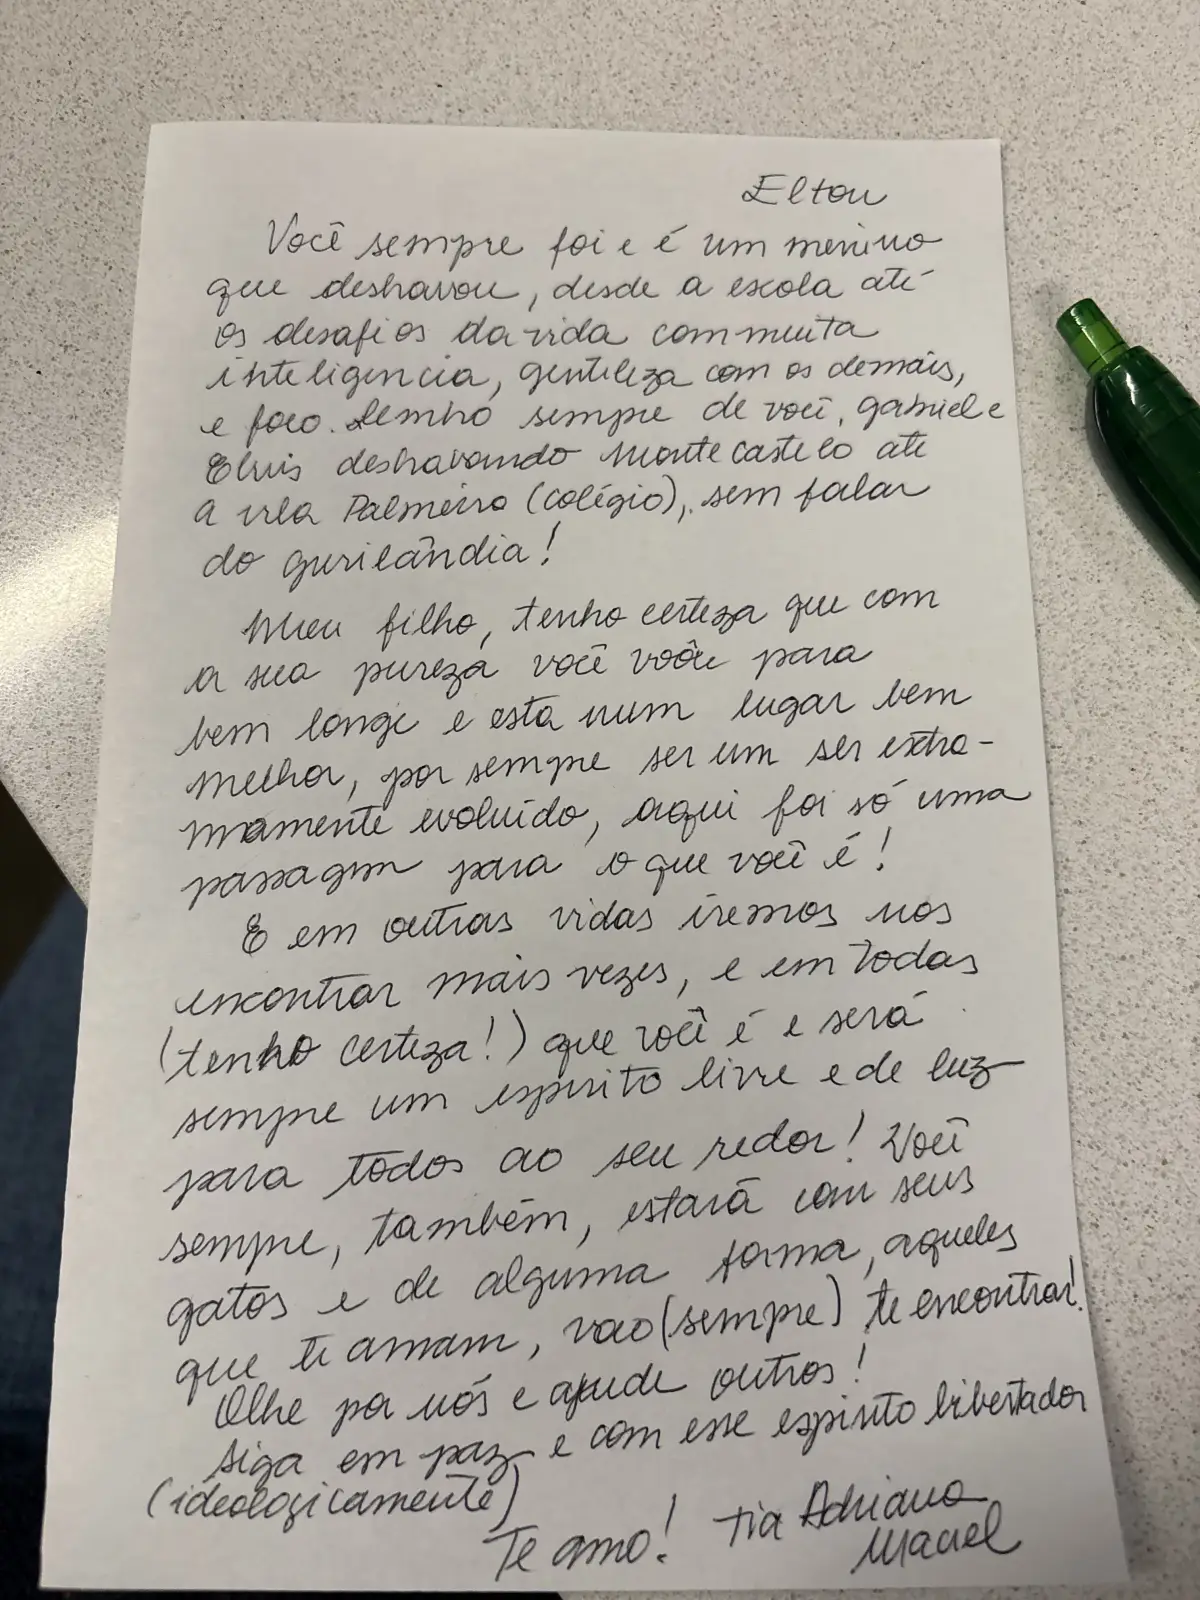 Elton
Você sempre foi e é um menino
que desbravou, desde a escola até
os desafios da vida com muita
inteligência, gentileza com os demais,
e foco. Lembro sempre de você, gabriel e
Elvis desbravando Monte Castelo até
a vila Palmeira (colégio), sem falar
do gurilândia!
Meu filho, tenho certeza que com
a sua pureza você vôou para
bem longe e esta num lugar bem
melhor, por sempre ser um ser extre-
mamente evoluído, aqui foi só uma
passagem para o que você é!
E em outras vidas iremos nos
encontrar mais vezes, e em todas
(tenho certeza!) que você é e será
sempre um espirito livre e de luz
para todos ao seu redor! Você
sempre, também, estará com seus
gatos e de alguma forma, aqueles
que te amam, vão (sempre) te encontrar!
Olhe por nós e ajude outros!
Siga em paz e com esse espirito libertador
(ideologicamente)
Te amo! tia Adriana
Maciel